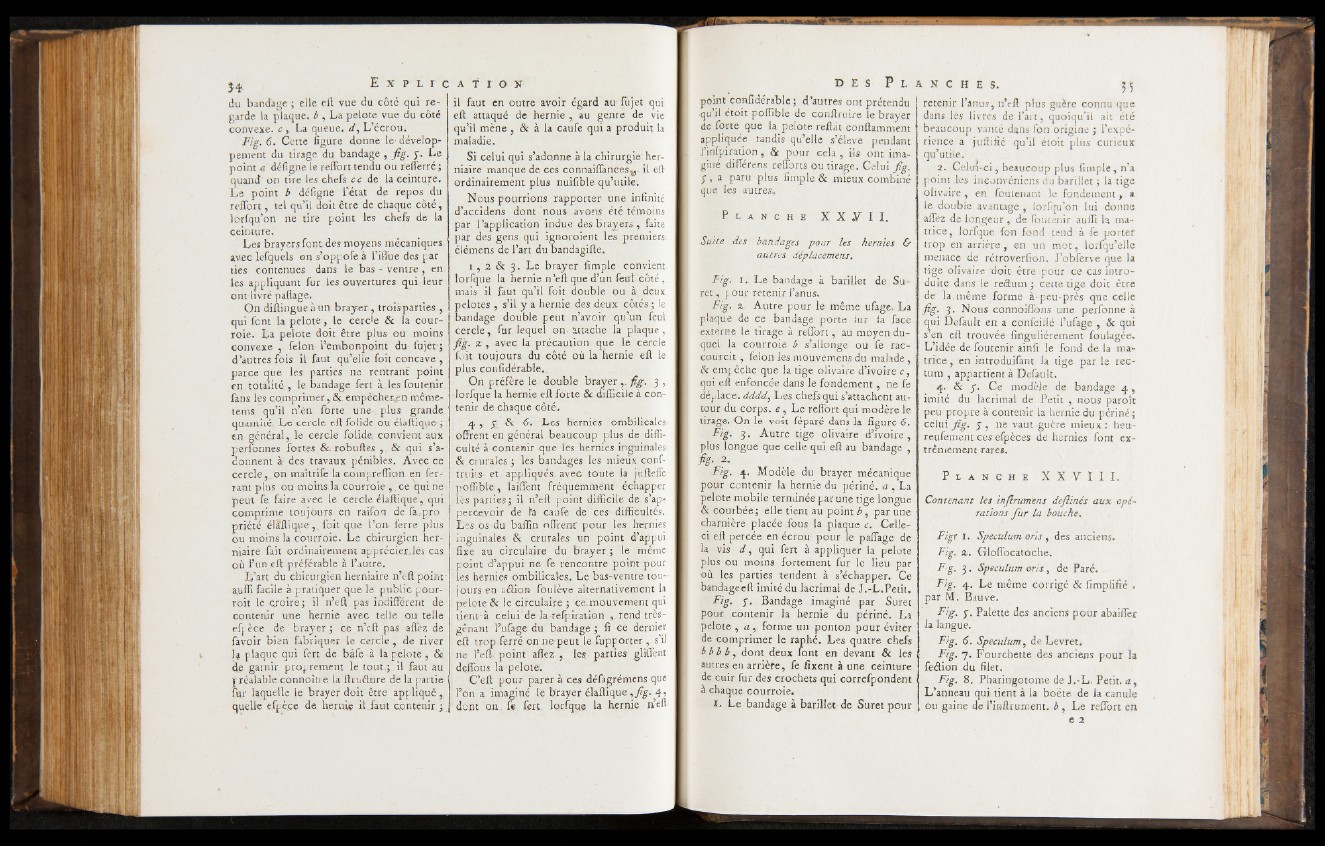 34 EXPLICATION
du bandage ; elle eſt vue du côté qui re-
garde la plaque. b , La pelote vue du côté
convexe. c , La queue. d, L'écrou.
Fig. 6. Cette figure donne le dévelop-
pement du tirage du bandage , fig. 5. Le
point a déſigne le reſſort tendu ou reſſerré ;
quand on tire les chefs c c de la ceinture.
Le point b déſigne l'état de repos du
reſſort , tel qu'il doit être de chaque côté,
lorſqu'on ne tire point les chefs de la
ceinture.
Les brayers ſont des moyens mécaniques
avec leſquels on s'oppoſe à l'iſſue des par
ties contenues dans le bas - ventre , en
les appliquant ſur les ouvertures qui leur
ont livré paſſage.
On diſtingue à un brayer , trois parties ,
qui ſont la pelote, le cercle & la cour-
roie. La pelote doit être plus ou moins
convexe , ſelon l'embonpoint du ſujet ;
d'autres fois il faut qu'elle ſoit concave ,
parce que les parties ne rentrant point
en totalité , le bandage ſert à les ſoutenir
ſans les comprimer, & empêcher en même-
tems qu'il n'en ſorte une plus grande
quantité. Le cercle eſt ſolide ou élaſtique ;
en général, le cercle ſolide convient aux
perſonnes fortes & robuſtes , & qui s'a-
donnent à des travaux pénibles. Avec ce
cercle, on maîtriſe la compreſſion en ſer-
rant plus ou moins la courroie , ce qui ne
peut ſe faire avec le cercle élaſtique, qui
comprime toujours en raiſon de ſa pro
priété élaſtique , ſoit que l'on ſerre plus
ou moins la courroie. Le chirurgien her-
niaire ſait ordinairement apprécier les cas
où l'un eſt préférable à l'autre.
L'art du chirurgien herniaire n'eſt point
auſſi facile à pratiquer que le public pour-
roit le croire ; il n'eſt pas indifférent de
contenir une hernie avec telle ou telle
eſpèce de brayer ; ce n'eſt pas aſſez de
ſavoir bien fabriquer le cercle , de river
la plaque qui ſert de bâſe à la pelote , &
de garnir proprement le tout ; il faut au
préalable connoître la ſtructure de la partie
ſur laquelle le brayer doit être appliqué ,
quelle eſpèce de hernie il faut contenir ;
il faut en outre avoir égard au ſujet qui
eſt attaqué de hernie , au genre de vie
qu'il mène , & à la cauſe qui a produit la
maladie.
Si celui qui s'adonne à la chirurgie her-
niaire manque de ces connaiſſances, il eſt
ordinairement plus nuiſible qu'utile.
Nous pourrions rapporter une infinité
d'accidens dont nous avons été témoins
par l'application indue des brayers , faite
par des gens qui ignoroient les premiers
élémens de l'art du bandagiſte.
1 , 2 & 3. Le brayer ſimple convient
lorſque la hernie n'eſt que d'un ſeul côté ,
mais il faut qu'il ſoit double ou à deux
pelotes , s'il y a hernie des deux côtés ; le
bandage double peut n'avoir qu'un ſeul
cercle , ſur lequel on attache la plaque ,
fig. 2 , avec la précaution que le cercle
ſoit toujours du côté où la hernie eſt le
plus conſidérable.
On préfère le double brayer , fig. 3 ,
lorſque la hernie eſt forte & difficile à con-
tenir de chaque côté.
4 , 5 & 6. Les hernies ombilicales
offrent en général beaucoup plus de diffi-
culté à contenir que les hernies inguinales
& crurales ; les bandages les mieux conſ-
truits et appliqués avec toute la juſteſſe
poſſible , laiſſent fréquemment échapper
les parties ; il n'eſt point difficile de s'ap-
percevoir de la cauſe de ces difficultés.
Les os du baſſin offrent pour les hernies
inguinales & crurales un point d'appui
fixe au circulaire du brayer ; le même
point d'appui ne ſe rencontre point pour
les hernies ombilicales. Le bas-ventre tou-
jours en action ſoulève alternativement la
pelote & le circulaire ; ce mouvement qui
tient à celui de la reſpiration , rend très-
gênant l'uſage du bandage ; ſi ce dernier
eſt trop ſerré on ne peut le ſupporter , s'il
ne l'eſt point aſſez , les parties gliſſent
deſſous la pelote.
C'eſt pour parer à ces déſagrémens que
l'on a imaginé le brayer élaſtique , fig. 4 ,
dont on ſe ſert lorſque la hernie n'eſt
DES PLANCHES. 35
point conſidérable ; d'autres ont prétendu
qu'il étoit poſſible de conſtruire le brayer
de ſorte que la pelote reſtât conſtamment
appliquée tandis qu'elle s'élève pendant
l'inſpiration , & pour cela , ils ont ima-
giné différens reſſorts ou tirage. Celui fig.
5 , a paru plus ſimple & mieux combiné
que les autres.
PLANCHE XXVII.
Suite des bandages pour les hernies &
autres déplacemens.
Fig. 1. Le bandage à barillet de Su-
ret , pour retenir l'anus.
Fig. 2 Autre pour le même uſage. La
plaque de ce bandage porte ſur ſa face
externe le tirage à reſſort , au moyen du-
quel la courroie b s'allonge ou ſe rac-
courcit , ſelon les mouvemens du malade ,
& empêche que la tige olivaire d'ivoire c ,
qui eſt enfoncée dans le fondement , ne ſe
déplace. dddd, Les chefs qui s'attachent au-
tour du corps. e , Le reſſort qui modère le
tirage. On le voit ſéparé dans la figure 6.
Fig. 3. Autre tige olivaire d'ivoire ,
plus longue que celle qui eſt au bandage ,
fig. 2.
Fig. 4. Modèle du brayer mécanique
pour contenir la hernie du périné. a , La
pelote mobile terminée par une tige longue
& courbée ; elle tient au point b , par une
charnière placée ſous la plaque c. Celle-
ci eſt percée en écrou pour le paſſage de
la vis d , qui ſert à appliquer la pelote
plus ou moins fortement ſur le lieu par
où les parties tendent à s'échapper. Ce
bandage eſt imité du lacrimal de J.-L. Petit.
Fig. 5. Bandage imaginé par Suret
pour contenir la hernie du périné. La
pelote , a , forme un ponton pour éviter
de comprimer le raphé. Les quatre chefs
b b b b , dont deux ſont en devant & les
autres en arrière, ſe fixent à une ceinture
de cuir ſur des crochets qui correſpondent
à chaque courroie.
1. Le bandage à barillet de Suret pour
retenir l'anus, n'eſt plus guère connu que
dans les livres de l'art, quoiqu'il ait été
beaucoup vanté dans ſon origine ; l'expé-
rience a juſtifié qu'il étoit plus curieux
qu'utile.
2. Celui-ci, beaucoup plus ſimple , n'a
point les inconvéniens du barillet ; la tige
olivaire , en ſoutenant le fondement , a
le double avantage , lorſqu'on lui donne
aſſez de longeur , de ſoutenir auſſi la ma-
trice, lorſque ſon fond tend à ſe porter
trop en arrière , en un mot, lorſqu'elle
menace de rétroverſion. J'obſerve que la
tige olivaire doit être pour ce cas intro-
duite dans le rectum ; cette tige doit être
de la même forme à-peu-près que celle
fig. 3. Nous connoiſſons une perſonne à
qui Default en a conſeillé l'uſage , & qui
s'en eſt trouvée ſingulièrement ſoulagée.
L'idée de ſoutenir ainſi le fond de la ma-
trice , en introduiſant la tige par le rec-
tum , appartient à Default.
4. & 5. Ce modèle de bandage 4 ,
imité du lacrimal de Petit , nous paroît
peu propre à contenir la hernie du périné ;
celui fig. 5 , ne vaut guère mieux : heu-
reuſement ces eſpèces de hernies ſont ex-
trêmement rares.
PLANCHE XXVIII.
Contenant les inſtrumens deſtinés aux opé-
rations ſur la bouche.
Figr 1. Speculum oris , des anciens.
Fig. 2. Gloſſocatoche.
Fig. 3. Speculum oris , de Paré.
Fig. 4. Le même corrigé & ſimplifié ,
par M. Bauve.
Fig. 5. Palette des anciens pour abaiſſer
la langue.
Fig. 6. Speculum, de Levret.
Fig. 7. Fourchette des anciens pour la
ſection du filet.
Fig. 8. Pharingotome de J.-L. Petit. a ,
L'anneau qui tient à la boëte de la canule
ou gaine de l'inſtrument. b , Le reſſort en
e 2